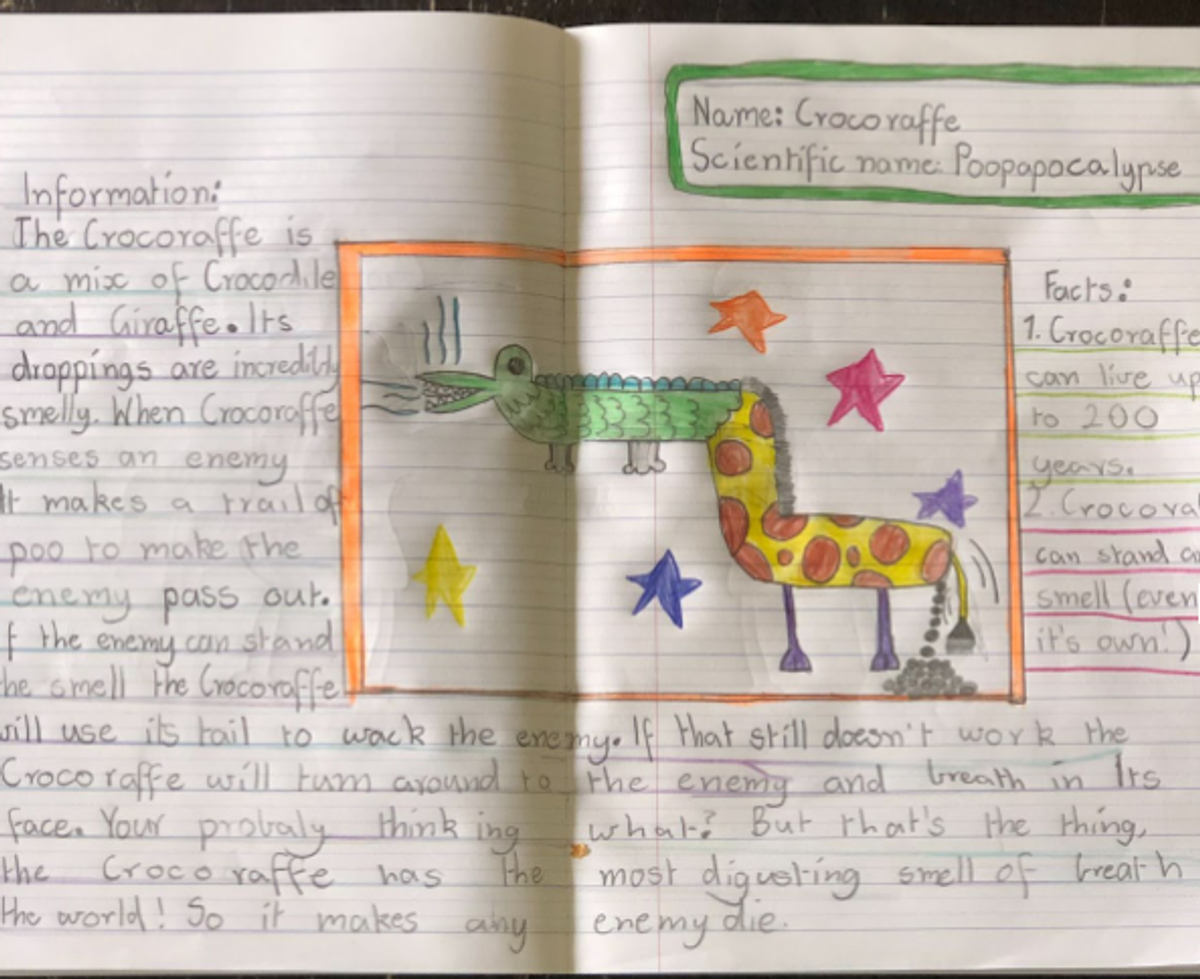 Name: Crocoraffe
Scientific name: Poopapocalypse
Information:
The Crocoraffe is
a mix of Crocodile
and Giraffe. Its
droppings are incredibly
smelly. When Crocoraffe
senses an enemy
It makes a trail of
poo to make the
enemy pass out.
f the enemy can stand
he smell the Crocoraffe
will use its tail to wack the enemy. If that still doesn't work the
Crocoraffe will turn around to the enemy and breath in Its
face. Your probaly thinking what? But that's the thing,
the Crocoraffe has the most digusting smell of breath
the world! So it makes any enemy die.
Facts:
1. Crocoraffe
can live up
to 200
years.
2. Crocora
can stand
smell (even
it's own!)